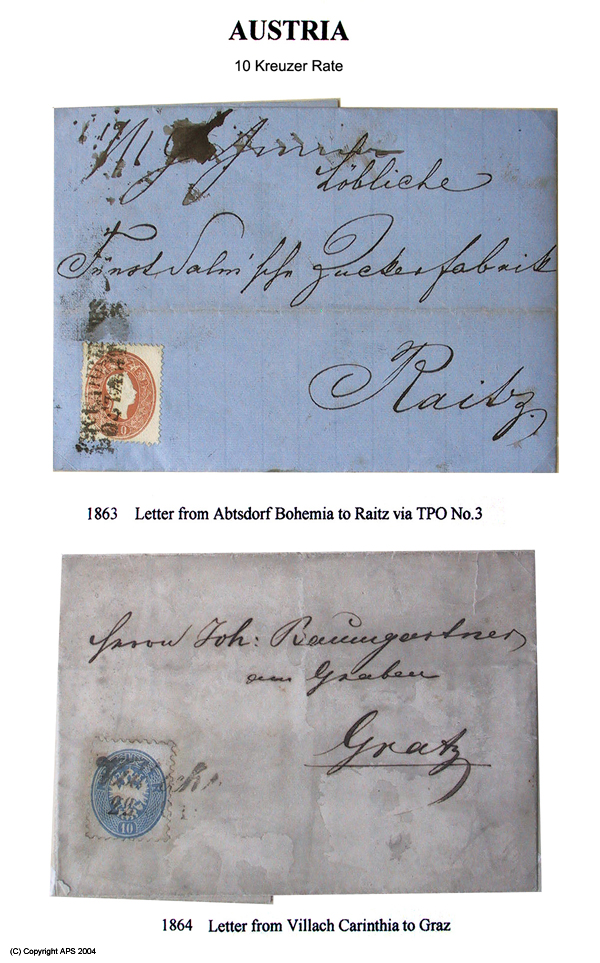 AUSTRIA
10 Kreuzer Rate
Löbliche
Fürst Salm'sche Zuckerfabrik
Raitz.
1863 Letter from Abtsdorf Bohemia to Raitz via TPO No.3
Herrn Joh: Baumgartner
am Graben
Gratz
10
1864 Letter from Villach Carinthia to Graz
(C) Copyright APS 2004